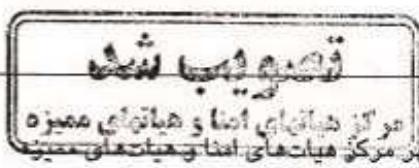 تصویب شد
مرکز هیأتهای امنا و هیأتهای ممیزه
مرکز هیات‌های امنا و هیات‌های ممیزه